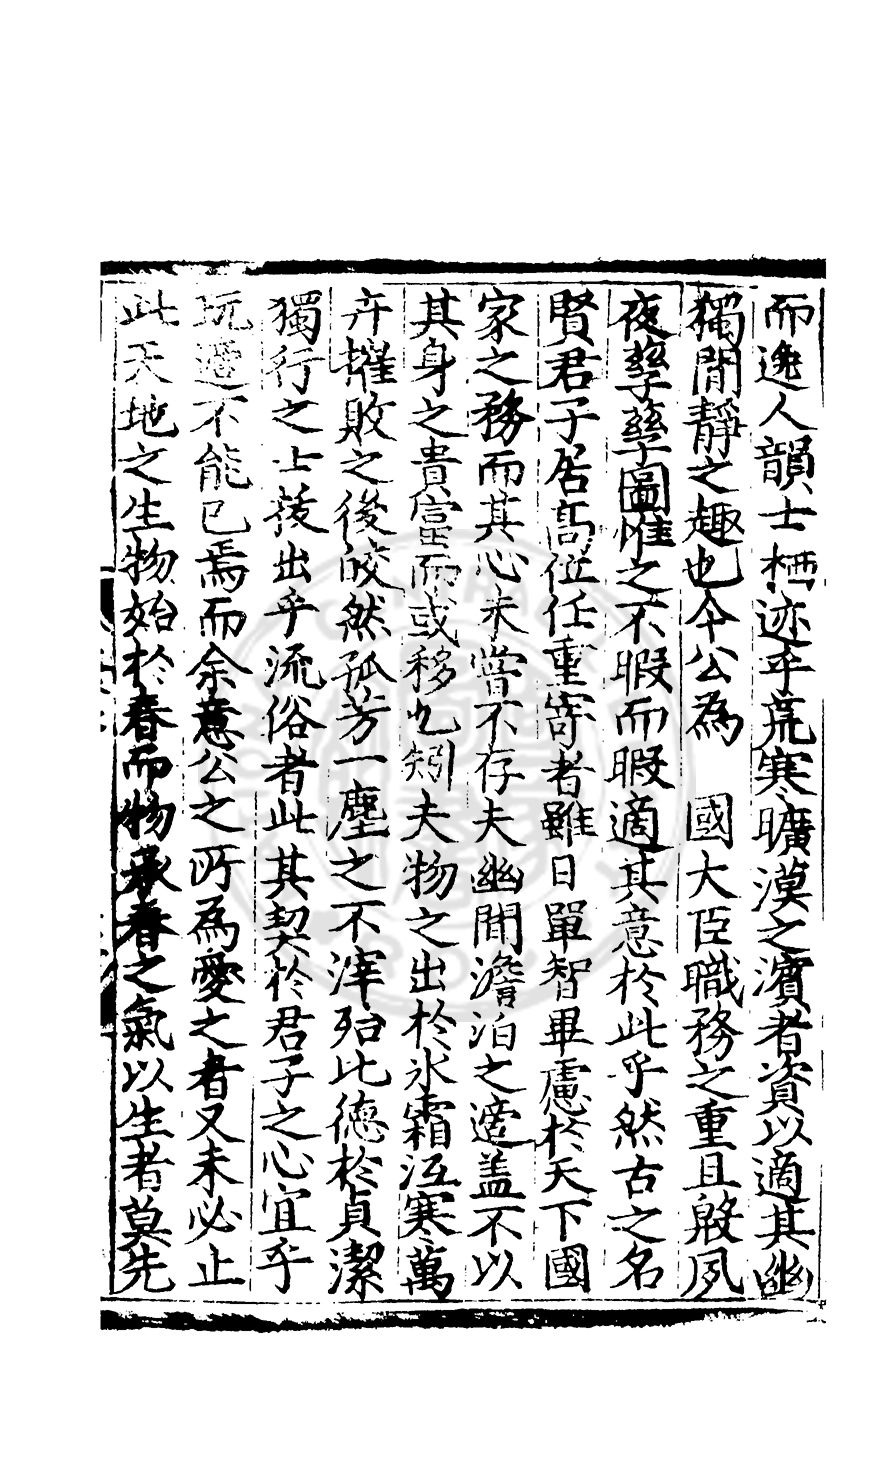 而逸人韻士栖迹乎荒寒曠漠之濱者資以適其幽
獨閒靜之趣也今公為　國大臣職務之重且殷夙
夜孳孳圖惟之不暇而暇適其意於此乎然古之名
賢君子居髙位任重寄者雖日單智畢慮於天下國
家之務而其心未嘗不存夫幽閒澹泊之適盖不以
其身之貴當而或移也矧夫物之出於氷霜沍寒萬
卉摧敗之後皎然孤芳一塵之不滓殆比德於貞潔
獨行之士㧞出乎流俗者此其契於君子之心宜乎
玩適不能已焉而余意公之所為愛之者又未必止
此天地之生物始於春而物承春之氣以生者莫先